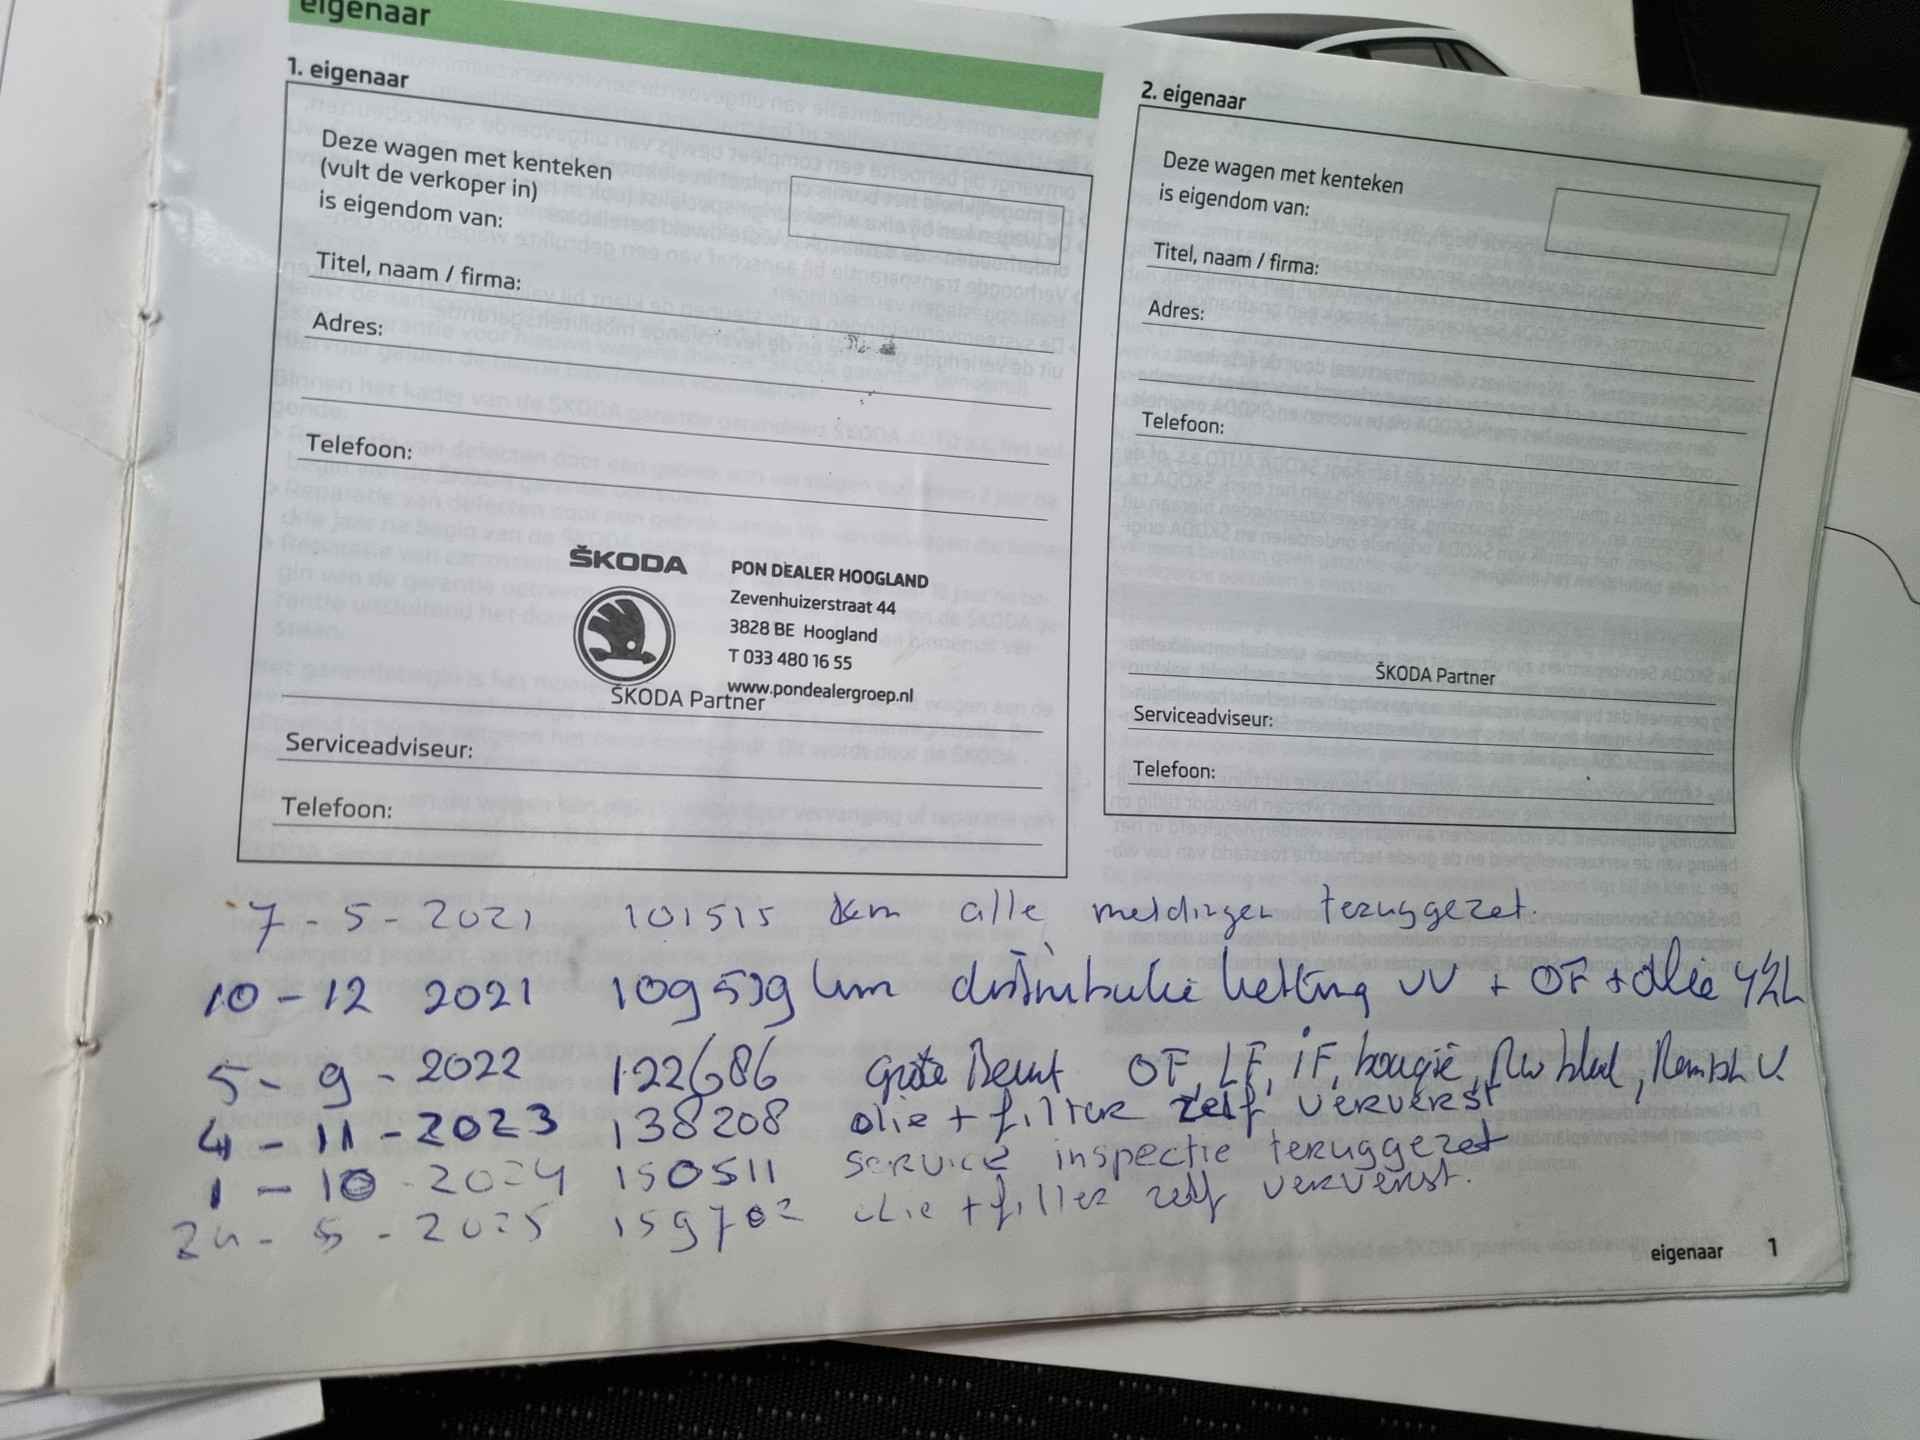 eigenaar
1. eigenaar
Deze wagen met kenteken
(vult de verkoper in)
is eigendom van:
Titel, naam / firma:
Adres:
Telefoon:
ŠKODA
PON DEALER HOOGLAND
Zevenhuizerstraat 44
3828 BE Hoogland
T 033 480 16 55
www.pondealergroep.nl
ŠKODA Partner
Serviceadviseur:
Telefoon:
2. eigenaar
Deze wagen met kenteken
is eigendom van:
Titel, naam / firma:
Adres:
Telefoon:
ŠKODA Partner
Serviceadviseur:
Telefoon:
7-5-2021 101515 km alle meldingen teruggezet.
10-12 2021 109539 km distributie ketting VV + OF + olie 4½L
5-9-2022 122686 grote Beurt OF, LF, iF, bougie, Remblok, Remsch V.
4-11-2023 138208 olie + filter zelf ververst
1-10-2024 150511 service inspectie teruggezet
24-5-2025 159702 olie + filter zelf ververst.
eigenaar 1